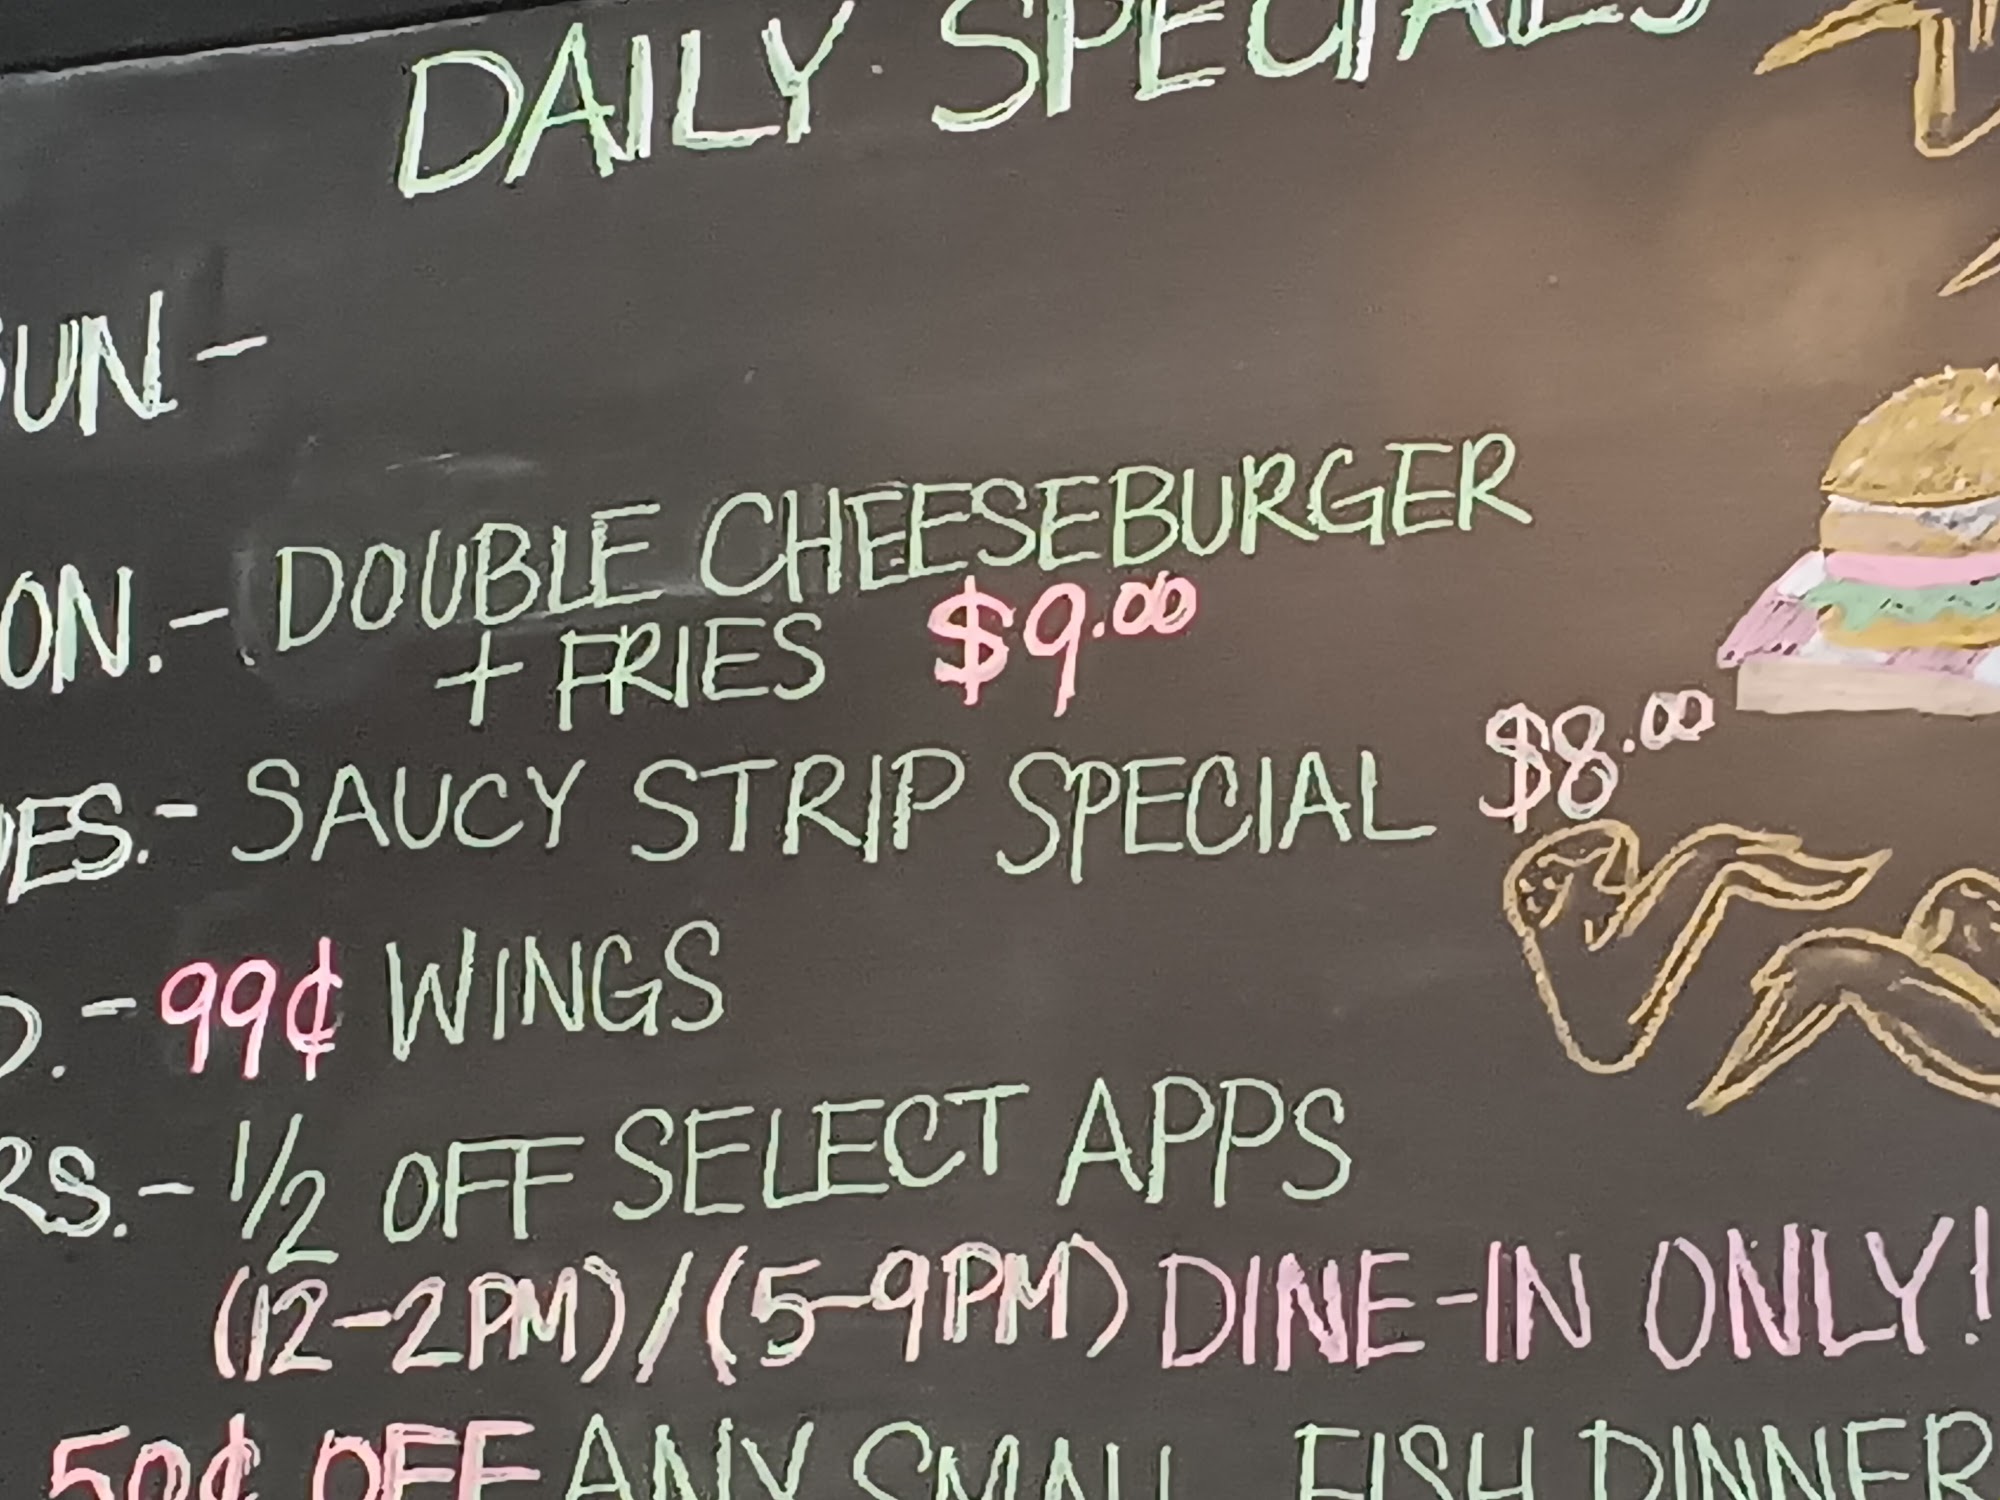 DAILY SPECIALS
SUN-
ON.- DOUBLE CHEESEBURGER
+ FRIES $9.00
UES.- SAUCY STRIP SPECIAL $8.00
D.- 99¢ WINGS
RS.- 1/2 OFF SELECT APPS
(12-2PM)/(5-9PM) DINE-IN ONLY!
50¢ OFF ANY SMALL FISH DINNER